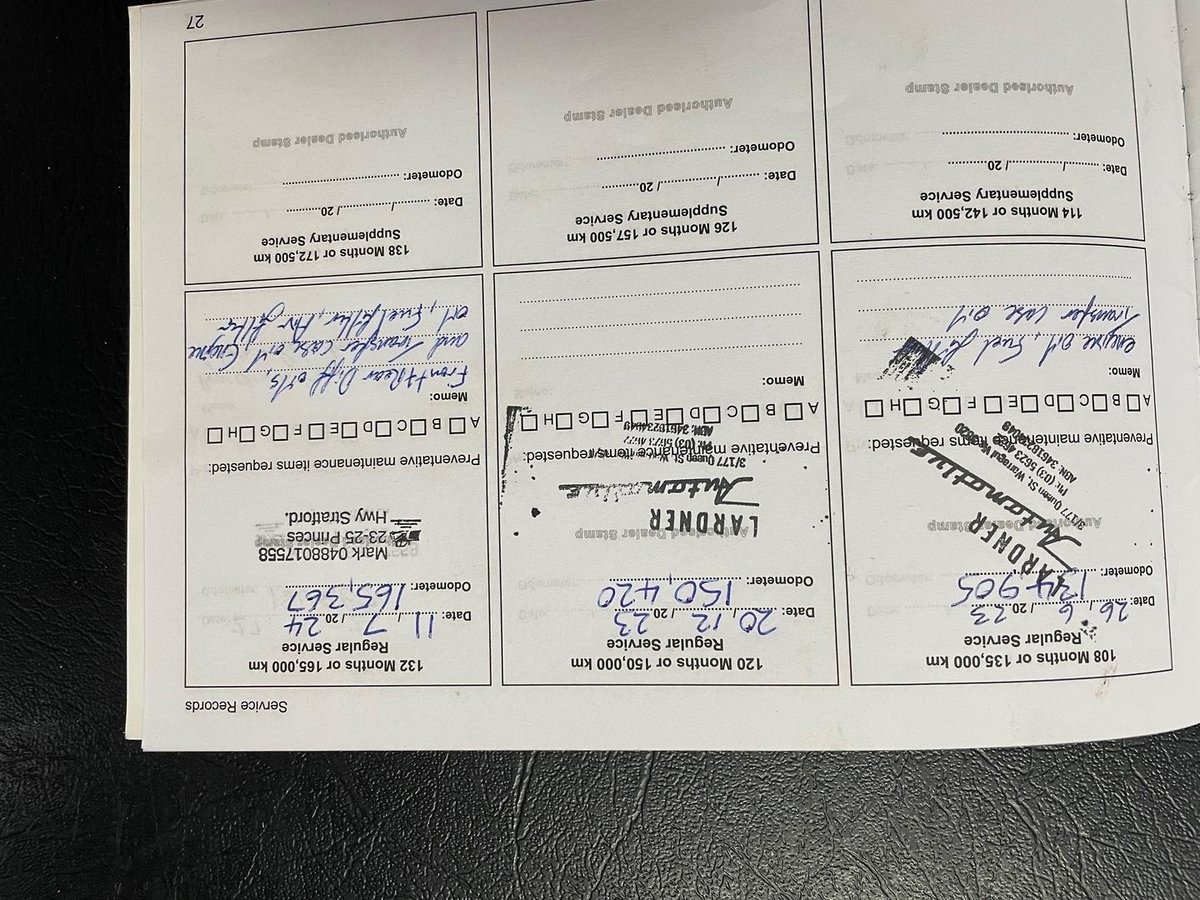 Service Records
108 Months or 135,000 km
Regular Service
Date: 26 / 6 / 20 23
Odometer: 134 905
LARDNER
Automotive
3/177 Queen St, Warragul Vic 3820
Ph: (03) 5623 4577
ABN: 34618234049
Authorised Dealer Stamp
Preventative maintenance items requested:
A B C D E F G H
Memo:
engine oil, Fuel filter
Transfer case oil
120 Months or 150,000 km
Regular Service
Date: 20 / 12 / 20 23
Odometer: 150,420
Authorised Dealer Stamp
LARDNER
Automotive
3/177 Queen St,
Ph: (03) 5623 4577
ABN: 34618234049
Preventative maintenance items requested:
A B C D E F G H
Memo:
132 Months or 165,000 km
Regular Service
Date: 11 / 7 / 20 24
Odometer: 165,367
Mark 0488017558
23-25 Princes
Hwy Stratford.
Preventative maintenance items requested:
A B C D E F G H
Memo:
Front & Rear Diff oils,
and Transfer case oil, Engine
oil, Fuel filter, Air filter
114 Months or 142,500 km
Supplementary Service
Date: / / 20
Odometer:
Authorised Dealer Stamp
126 Months or 157,500 km
Supplementary Service
Date: / / 20
Odometer:
Authorised Dealer Stamp
138 Months or 172,500 km
Supplementary Service
Date: / / 20
Odometer:
Authorised Dealer Stamp
27